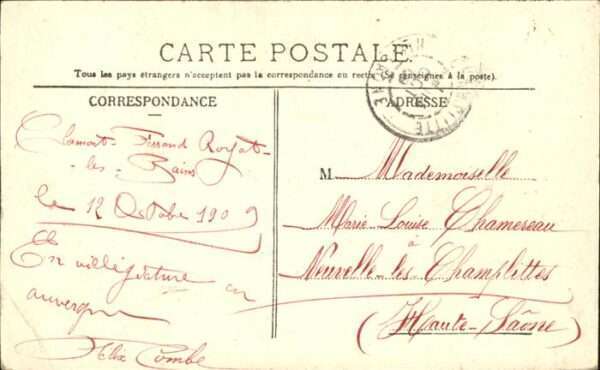 CARTE POSTALE.
Tous les pays étrangers n'acceptent pas la correspondance au recto (Se renseignes à la poste).
CORRESPONDANCE
ADRESSE
Clamont-Ferrand Royat-
-les-Bains
le 12 Octobe 1909
En villégiature en
auvergne
Combe
M Mademoiselle
Marie Louise Chamereau
à
Neuvelle-les-Champlittes
(Haute-Saône)